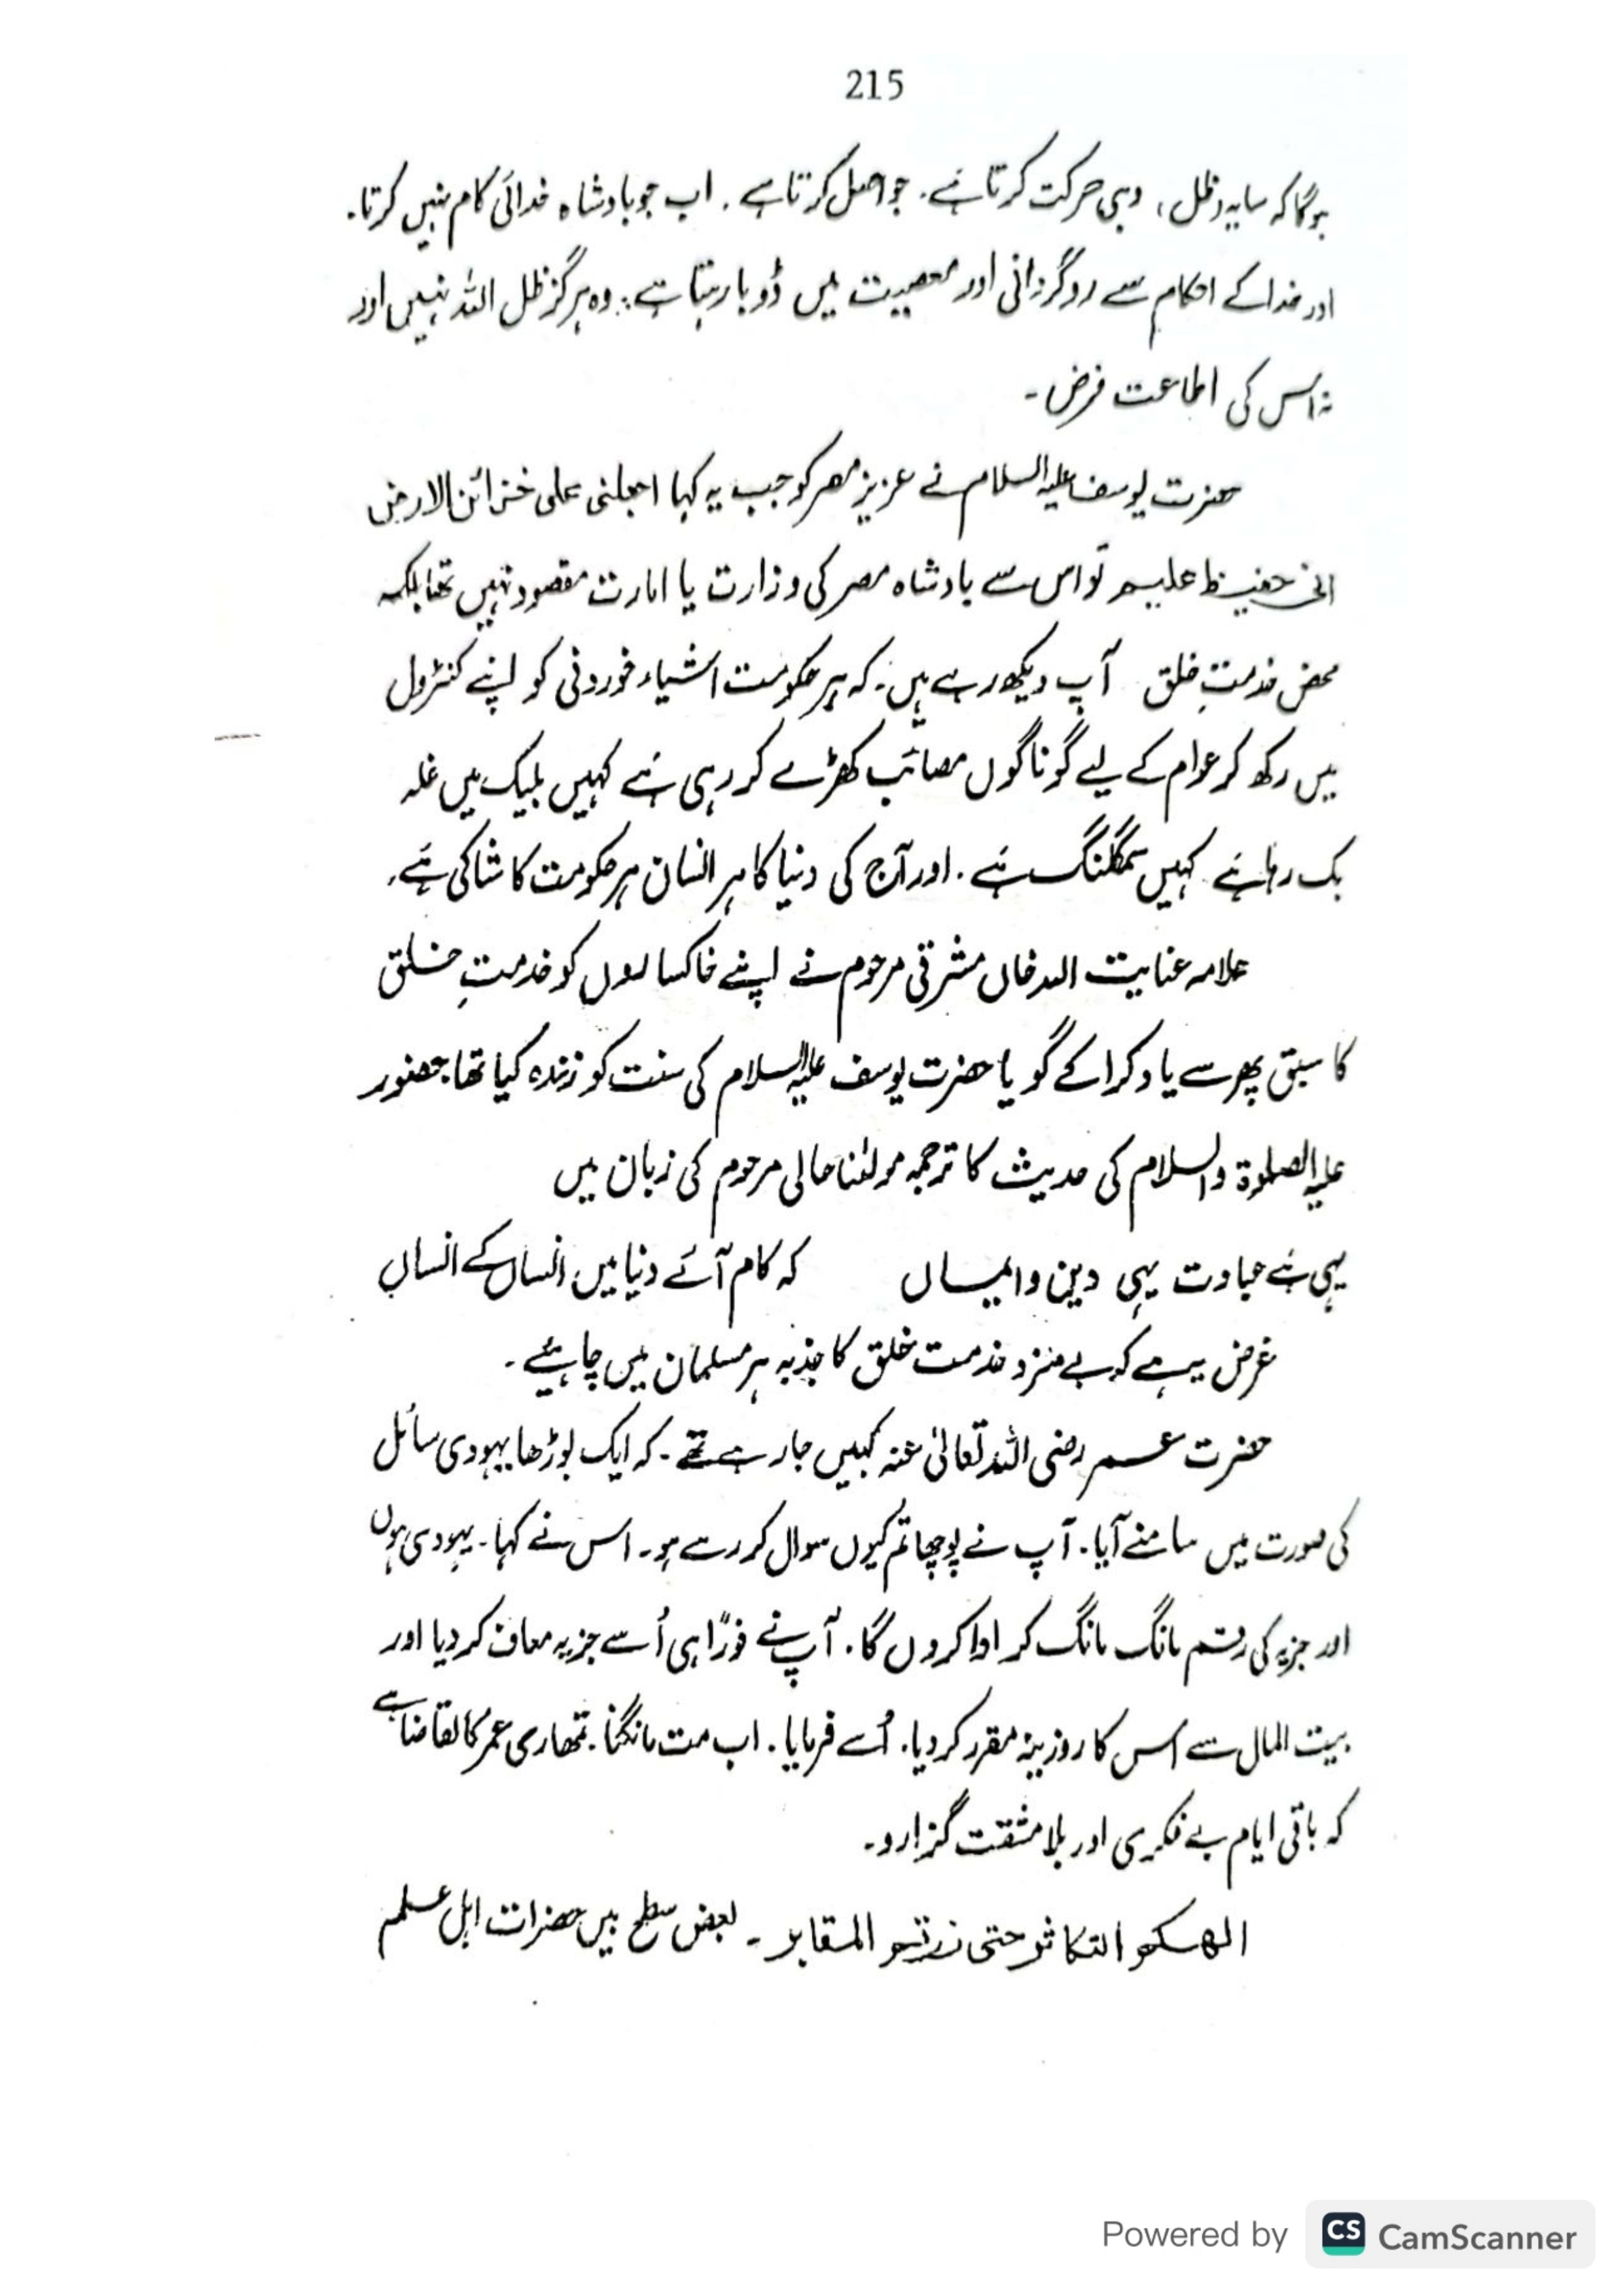 215
ہوگا کہ سایہ (ظل) وہی حرکت کرتا ہے۔ جو اصل کرتا ہے۔ اب جو بادشاہ خدائی کام نہیں کرتا۔
اور خدا کے احکام سے روگردانی اور معصیت میں ڈوبا رہتا ہے۔ وہ ہرگز ظل اللہ نہیں اور
نہ اس کی اطاعت فرض۔
حضرت یوسف علیہ السلام نے عزیز مصر کو جب یہ کہا اجعلنی علی خزائن الارض
انی حفیظ علیم تو اس سے بادشاہ مصر کی وزارت یا امارت مقصود نہیں تھا بلکہ
محض خدمتِ خلق آپ دیکھ رہے ہیں۔ کہ ہر حکومت اشیاء خوردنی کو اپنے کنٹرول
میں رکھ کر عوام کے لیے گوناگوں مصائب کھڑے کر رہی ہے کہیں بلیک میں غلہ
بک رہا ہے کہیں سمگلنگ ہے۔ اور آج کی دنیا کا ہر انسان ہر حکومت کا شاکی ہے۔
علامہ عنایت اللہ خاں مشرقی مرحوم نے اپنے خاکساروں کو خدمتِ خلق
کا سبق پھر سے یاد کرا کے گویا حضرت یوسف علیہ السلام کی سنت کو زندہ کیا تھا۔ حضور
علیہ الصلوۃ والسلام کی حدیث کا ترجمہ مولٰنا حالی مرحوم کی زبان میں
یہی ہے عبادت یہی دین و ایماں کہ کام آئے دنیا میں انساں کے انساں
غرض یہ ہے کہ بے مزد خدمت خلق کا جذبہ ہر مسلمان میں چاہئیے۔
حضرت عمر رضی اللہ تعالیٰ عنہ کہیں جا رہے تھے۔ کہ ایک بوڑھا یہودی سائل
کی صورت میں سامنے آیا۔ آپ نے پوچھا تم کیوں سوال کر رہے ہو۔ اس نے کہا۔ یہودی ہوں
اور جزیہ کی رقم مانگ مانگ کر ادا کروں گا۔ آپ نے فوراً ہی اُسے جزیہ معاف کر دیا اور
بیت المال سے اُس کا روزینہ مقرر کر دیا۔ اُسے فرمایا۔ اب مت مانگنا۔ تمھاری عمر کا تقاضا ہے
کہ باقی ایام بے فکری اور بلا مشقت گزارو۔
الھٰکم التکاثر حتی زرتم المقابر۔ بعض سطح بیں حضرات اہل علم
Powered by CS CamScanner